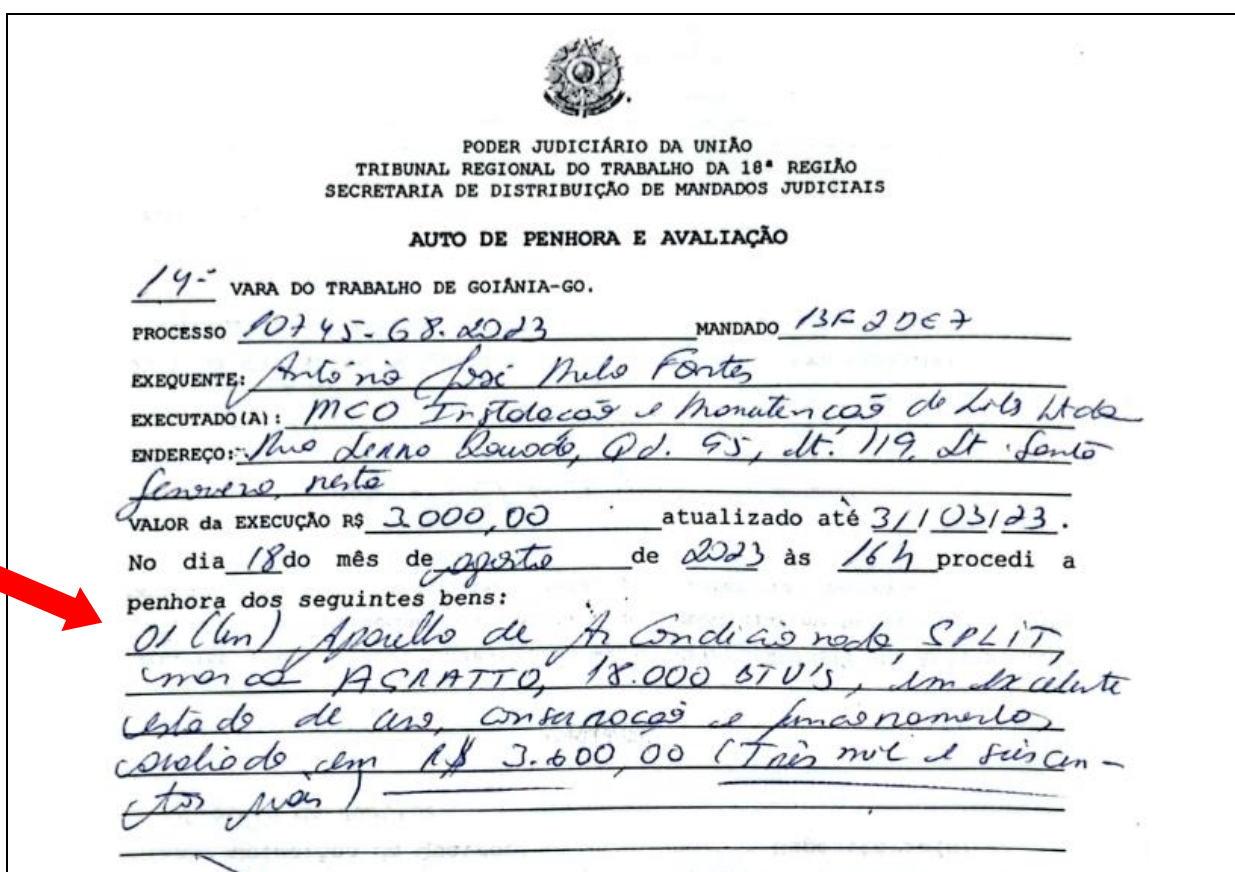 PODER JUDICIÁRIO DA UNIÃO
TRIBUNAL REGIONAL DO TRABALHO DA 18ª REGIÃO
SECRETARIA DE DISTRIBUIÇÃO DE MANDADOS JUDICIAIS
AUTO DE PENHORA E AVALIAÇÃO
14ª VARA DO TRABALHO DE GOIÂNIA-GO.
PROCESSO 10745-68.2023 MANDADO 13F2DE7
EXEQUENTE: Antônio José Melo Fontes
EXECUTADO(A): MCO Instalação e Manutenção de Ltda
ENDEREÇO: Rua Qd. 95, Lt. 119, St. Santo
nesta
VALOR da EXECUÇÃO R$ 3.000,00 atualizado até 31/03/23.
No dia 18 do mês de agosto de 2023 às 16h procedi a
penhora dos seguintes bens:
01 (Um) Aparelho de Ar Condicionado, SPLIT,
marca AGRATTO, 18.000 BTU'S, em excelente
estado de uso, conservação e funcionamento,
avaliado em R$ 3.600,00 (Três mil e seiscen-
tos reais)